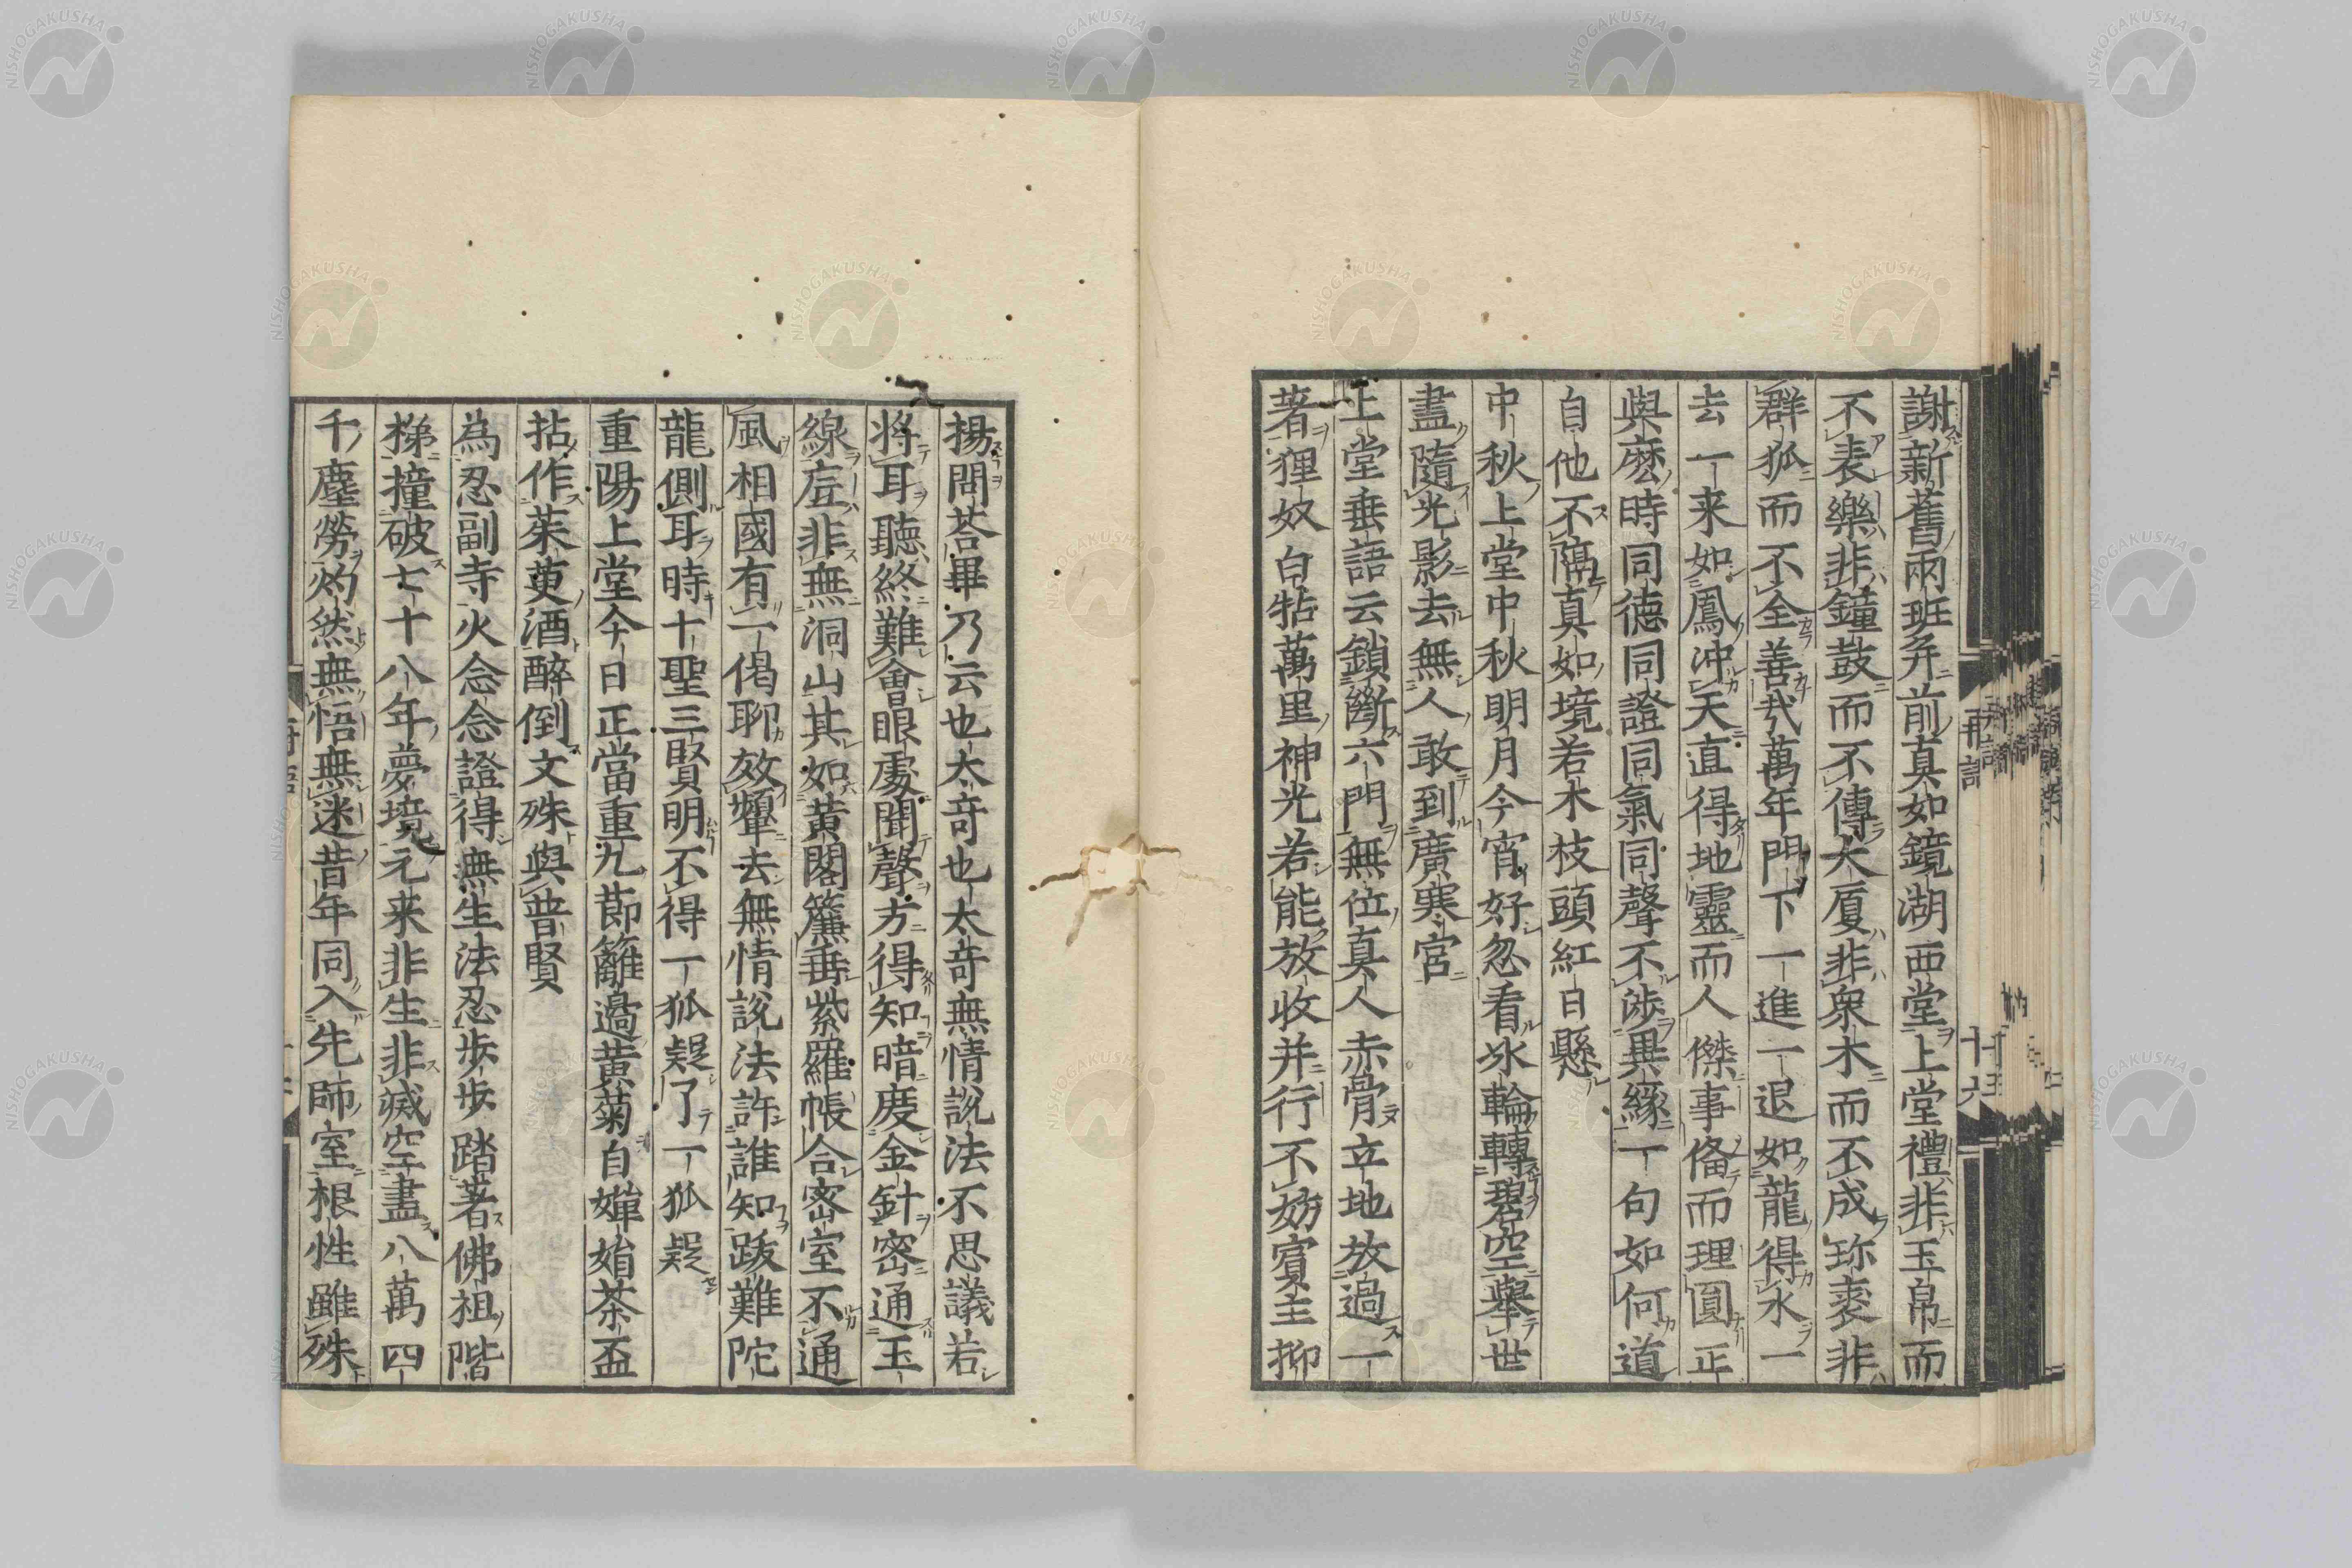 謝新舊兩班并前真如鏡湖西堂上堂禮非玉帛而
不表樂非鐘鼓而不傳大廈非衆木而不成珎裘非
群狐而不全善我萬年門下一進一退如龍得水一
去一来如鳳沖天直得地靈而人傑事俻而理圓正
與麽時同德同證同氣同聲不渉異緣一句如何道
自他不隔真如境若木枝頭紅日懸
中秋上堂中秋明月今宵好忽看氷輪轉碧空舉世
盡隨光影去無人敢到廣寒宮
上堂垂語云鎖斷六門無位真人赤骨立地放過一
著狸奴白牯萬里神光若能放收并行不妨賓主抑
揚問荅畢乃云也太奇也太奇無情說法不思議若
将耳聽終難會眼處聞聲方得知暗度金針密通玉
線㝎非無洞山其如黄閣簾垂紫羅帳合密室不通
風相國有一偈聊效顰去無情説法許誰知跋難陀
龍側耳時十聖三賢明不得一狐疑了一狐疑
重陽上堂今日正當重九節籬邉黄菊自嬋娟茶盃
拈作茱萸酒醉倒文殊與普賢
為忍副寺火念念證得無生法忍歩歩踏著佛祖階
梯撞破七十八年夢境元来非生非滅空盡八萬四
千塵勞灼然無悟無迷昔年同入先師室根性雖殊
再語
十六